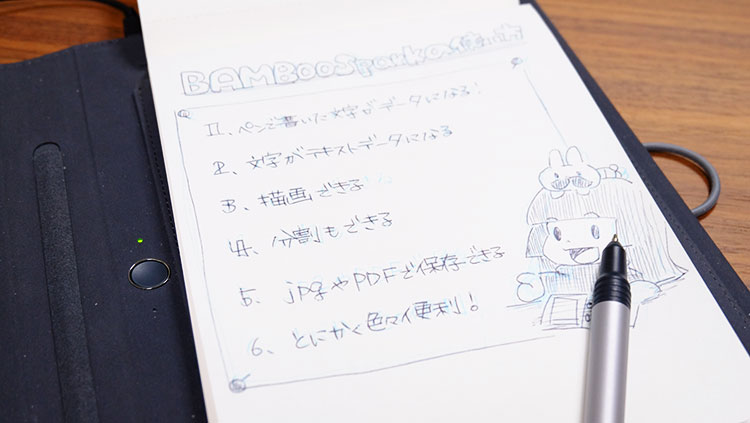 BAMBOO Sparkの使い方
1、ペンで書いた文字がデータになる!
2、文字がテキストデータになる
3、描画できる
4、分割もできる
5、jpgやPDFで保存できる
6、とにかく色々イ便利!